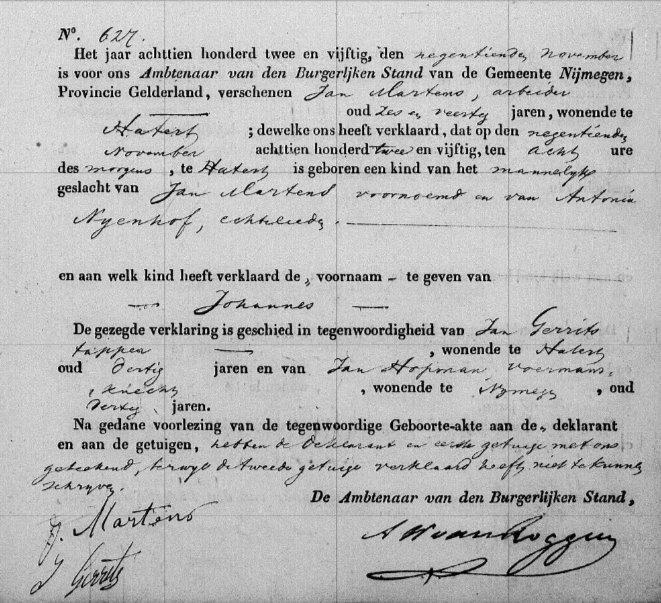 N°. 627.
Het jaar achttien honderd twee en vijftig, den negentienden november
is voor ons Ambtenaar van den Burgerlijken Stand van de Gemeente Nijmegen,
Provincie Gelderland, verschenen Jan Martens, arbeider
oud zes en veertig jaren, wonende te
Hatert ; dewelke ons heeft verklaard, dat op den negentienden
November achttien honderd twee en vijftig, ten acht ure
des morgens, te Hatert is geboren een kind van het mannelyk
geslacht van Jan Martens voornoemd en van Antonia
Nyenhof, echtelieden.
en aan welk kind heeft verklaard de, voornaam – te geven van
Johannes
De gezegde verklaring is geschied in tegenwoordigheid van Jan Gerrits
tapper , wonende te Hatert
oud dertig jaren en van Jan Hopman voermans
knecht , wonende te Nymegen , oud
dertig jaren.
Na gedane voorlezing van de tegenwoordige Geboorte-akte aan de deklarant
en aan de getuigen, hebben de deklarant en eerste getuige met ons
geteekend, terwyl de tweede getuige verklaard heeft, niet te kunnen
schryven.
De Ambtenaar van den Burgerlijken Stand,
J. Martens
J Gerrits